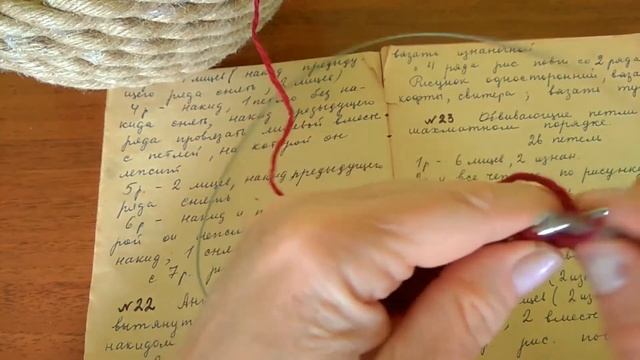 лицев( накид предыду-
щего ряда снять, 2 лицев)
4р. - накид, 1 петлю без на-
кида снять, накид предыдущего
ряда провязать лицевый вместе
с петлёй, на которой он
лепсит
5р. - 2 лицев, накид предыдущего
ряда снять
6р - накид и
рой он лепси
накид; 1 сня
с 7р. ри
№22
вытянут
накидом
вязать изнаночной
ряда рис повто со 2 ряда
Рисунок односторонний, вяза
кофты, свитера; вязать ту
№23 Обвивающие петли
шахматном порядке.
26 петель
1р - 6 лицев, 2 изнан.
и все чет по рисунк
(2 из
2 вместе
рис. по